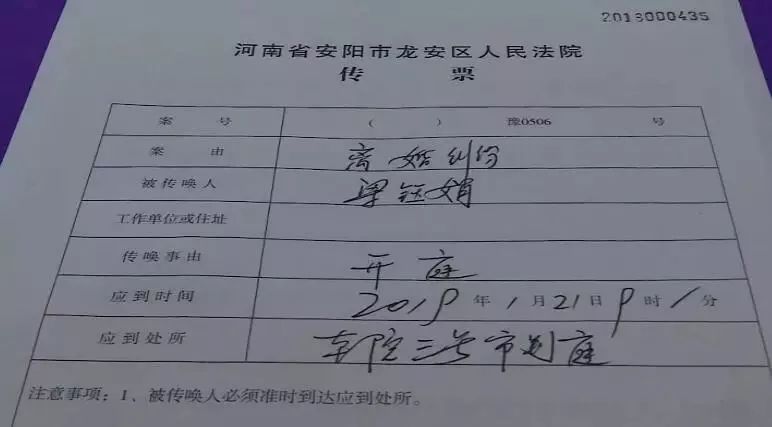 2018000435
河南省安阳市龙安区人民法院
传 票
案 号 （ ） 豫0506 号
案 由 离婚纠纷
被传唤人 梁钰娟
工作单位或住址
传唤事由 开庭
应到时间 2019 年 1 月 21 日 9 时 / 分
应到处所 本院三号审判庭
注意事项：1、被传唤人必须准时到达应到处所。